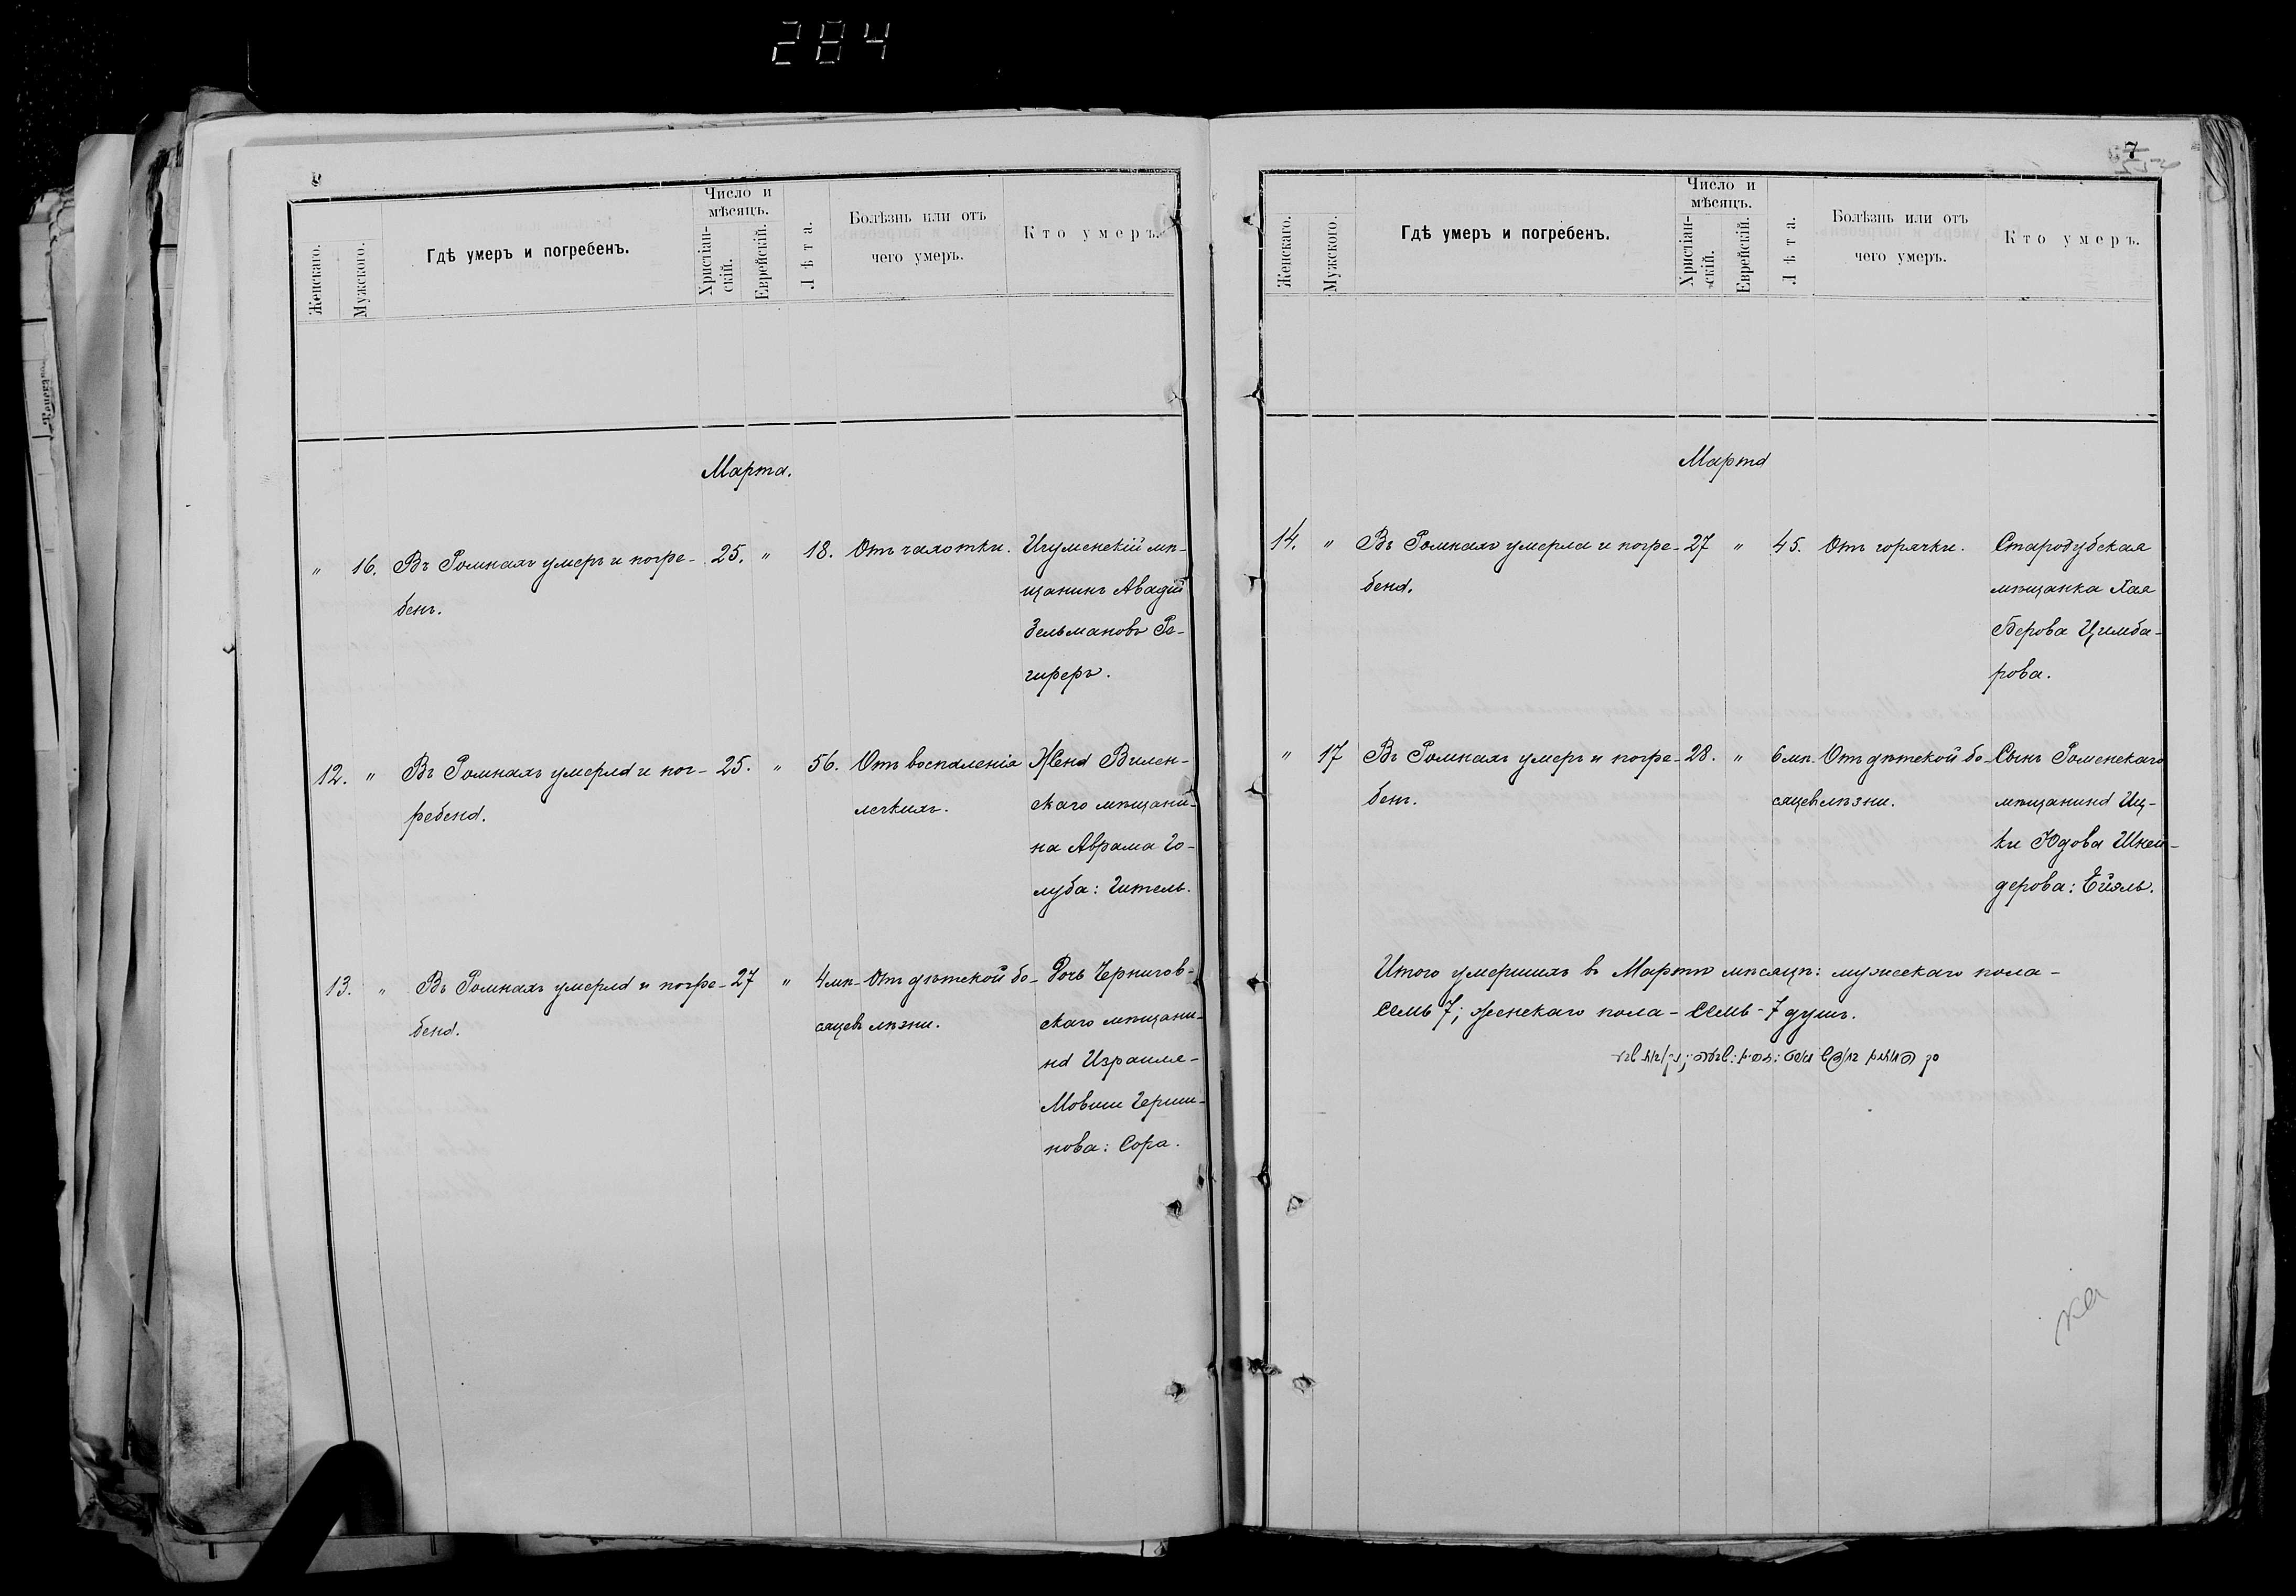 284
Женскаго.
Мужскаго.
Гдѣ умеръ и погребенъ.
Число и
мѣсяцъ.
Христіан-
скій.
Еврейскій.
Лѣта.
Болѣзнь или отъ
чего умеръ.
Кто умеръ.
Марта.
" 16. Въ Ромнахъ умеръ и погре- 25. " 18. Отъ чахотки. Игуменскій мѣ-
бенъ. щанинъ Авадій
Зельмановъ Ре-
гиреръ.
12. " Въ Ромнахъ умерла и пог- 25. " 56. Отъ воспаленія Жена Вилен-
ребена. легкихъ. скаго мѣщани-
на Аврама Го-
луба: Гитель.
13. " Въ Ромнахъ умерла и погре- 27 " 4 мѣ- Отъ дѣтской бо- Дочь Чернигов-
бена. сяцевъ лѣзни. скаго мѣщани-
на Израиле-
Мовши Герши-
нова: Сора.
7
Женскаго.
Мужскаго.
Гдѣ умеръ и погребенъ.
Число и
мѣсяцъ.
Христіан-
скій.
Еврейскій.
Лѣта.
Болѣзнь или отъ
чего умеръ.
Кто умеръ.
Марта
14. " Въ Ромнахъ умерла и погре- 27 " 45. Отъ горячки. Стародубская
бена. мѣщанка Хая
Берова Цимба-
рова.
" 17 Въ Ромнахъ умеръ и погре- 28. " 6 мѣ- Отъ дѣтской бо- Сынъ Роменскаго
бенъ. сяцевъ лѣзни. мѣщанина Иц-
ки Юдова Шней-
дерова:
Итого умершихъ въ Мартѣ мѣсяцѣ: мужескаго пола-
семь 7; женскаго пола - семь - 7 душъ.